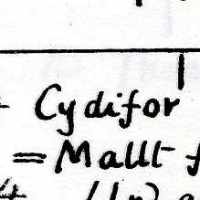 Cydifor
= Mallt